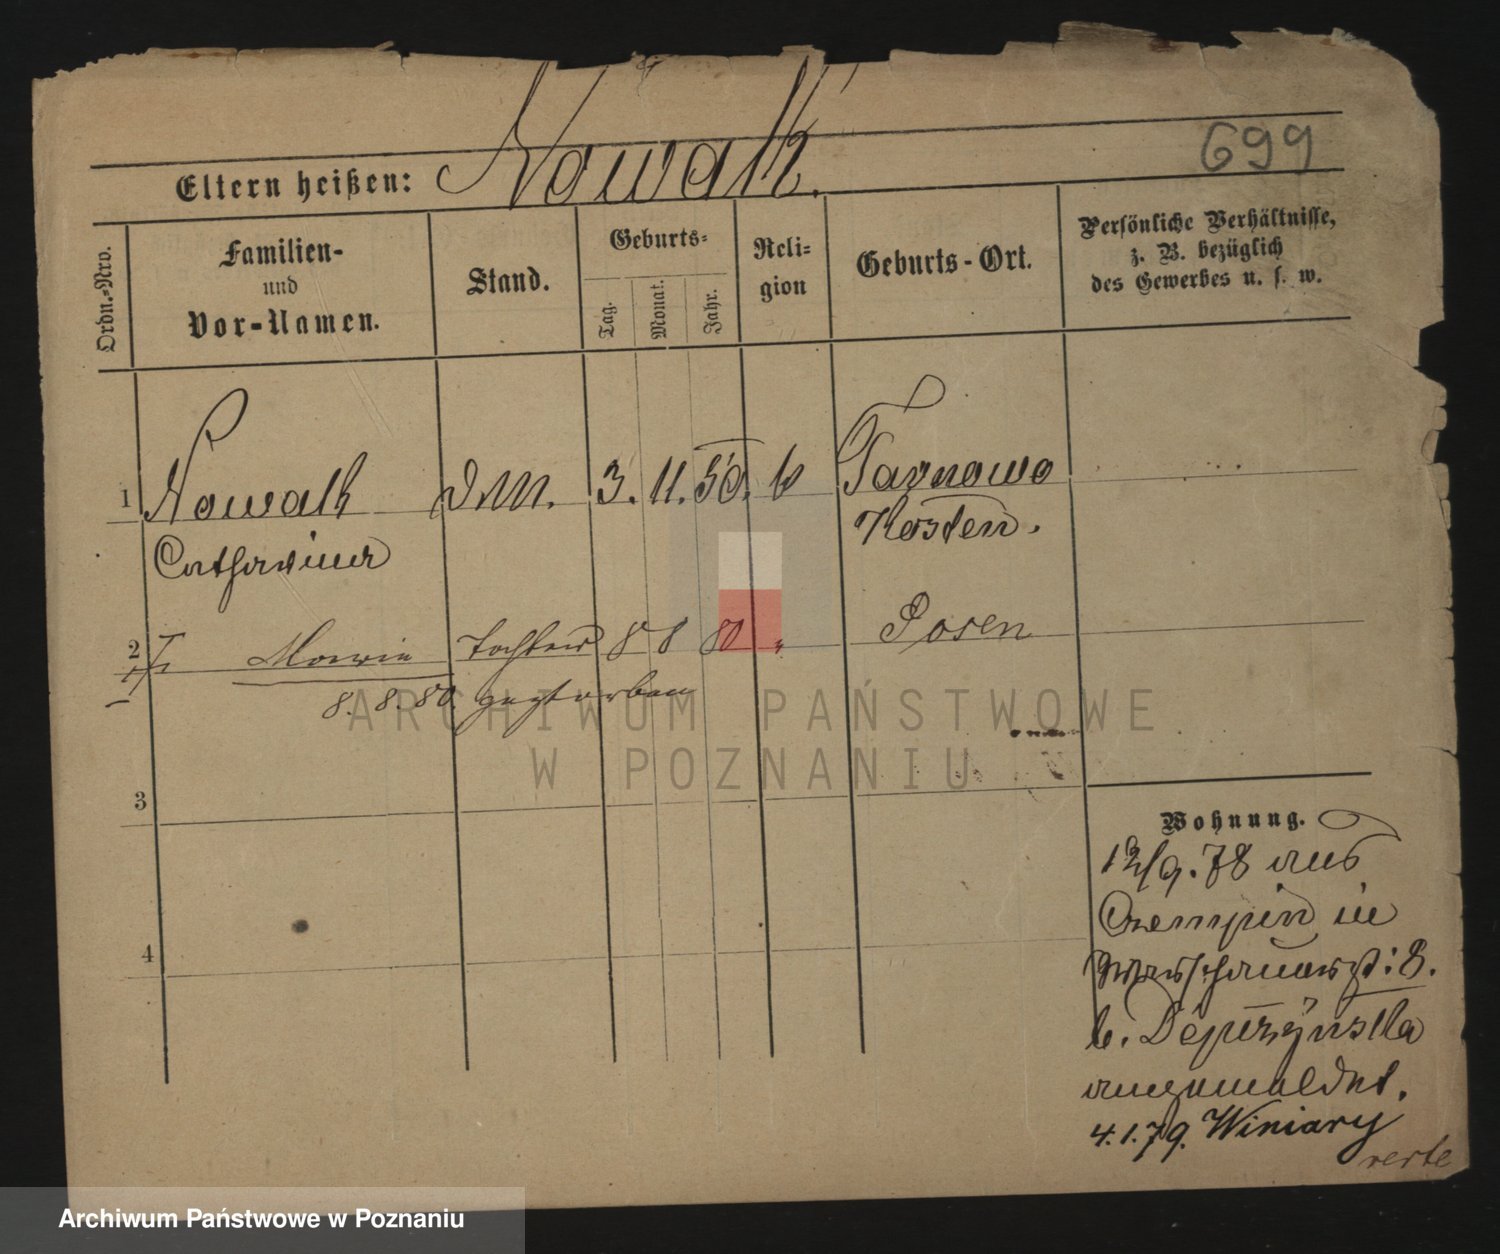 699
Eltern heißen: Nowak.
Ordn.-Nro.
Familien- und Vor-Namen.
Stand.
Geburts-
Tag.
Monat.
Jahr.
Reli-
gion
Geburts-Ort.
Persönliche Verhältnisse,
z. B. bezüglich
des Gewerbes u. s. w.
1 Nowak D.M. 3. 11. 50. k Tarnowo
Catharina Kosten.
2 Marie Tochter 8 8 80 " Posen
8. 8. 80 gestorben
3
4
Wohnung.
12/9. 78 aus
Czempin in
Warschauerst: 8.
b. Depczynska
angemeldet.
4.1.79. Winiary
verte
ARCHIWUM PAŃSTWOWE
W POZNANIU
Archiwum Państwowe w Poznaniu